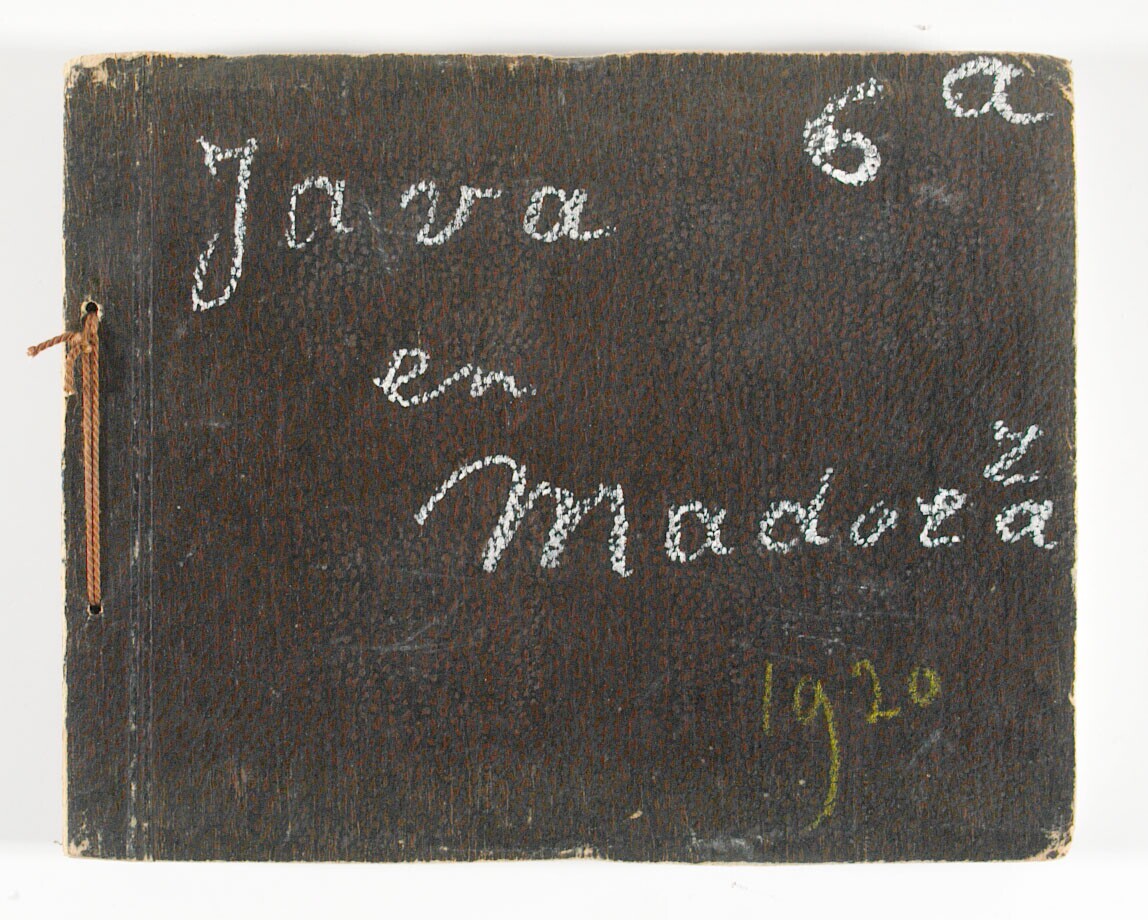 6a
Java
en
Madoera
1920